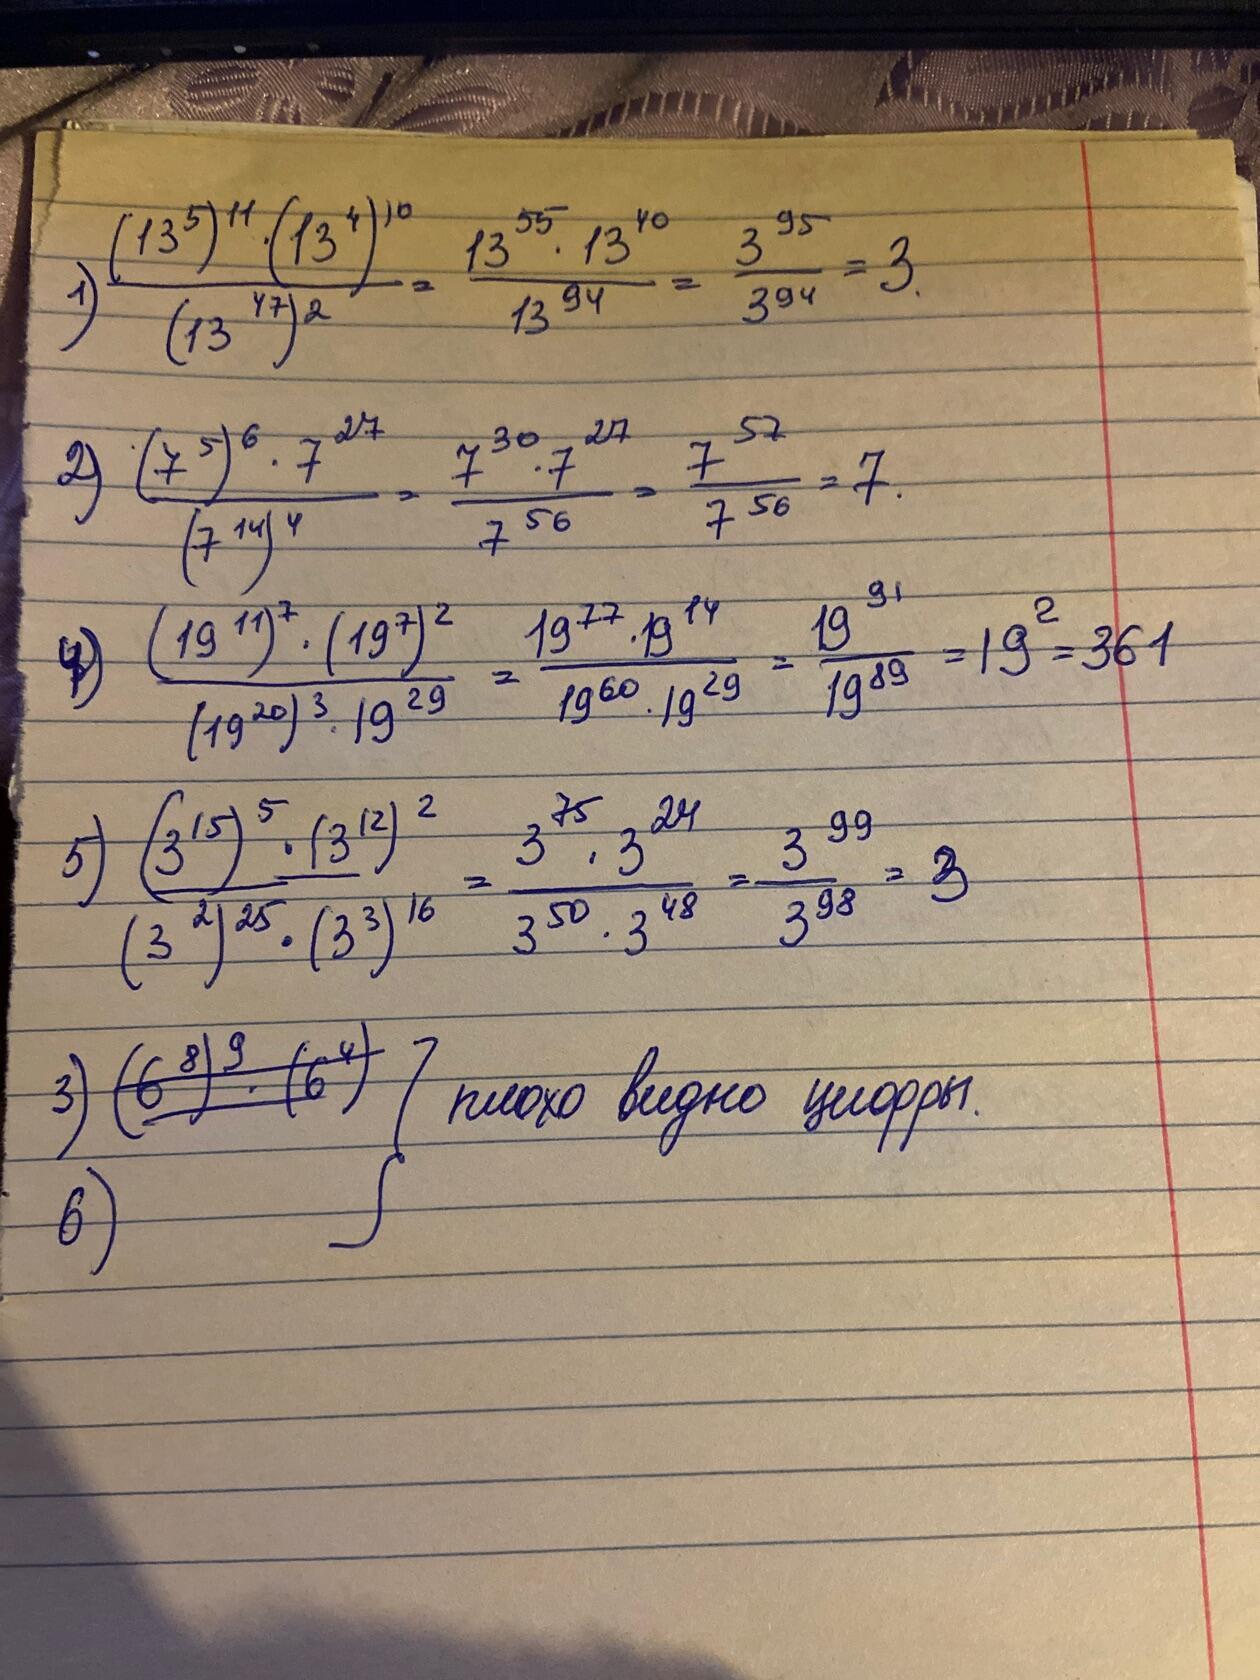 1) ((13^5)^11 · (13^4)^10) / (13^47)^2 = (13^55 · 13^40) / 13^94 = 3^95 / 3^94 = 3.
2) ((7^5)^6 · 7^27) / (7^14)^4 = (7^30 · 7^27) / 7^56 = 7^57 / 7^56 = 7.
4) ((19^11)^7 · (19^7)^2) / ((19^20)^3 · 19^29) = (19^77 · 19^14) / (19^60 · 19^29) = 19^91 / 19^89 = 19^2 = 361
5) ((3^15)^5 · (3^12)^2) / ((3^2)^25 · (3^3)^16) = (3^75 · 3^24) / (3^50 · 3^48) = 3^99 / 3^98 = 3
3) (6^8)^9 · (6^4) плохо видно цифры.
6)